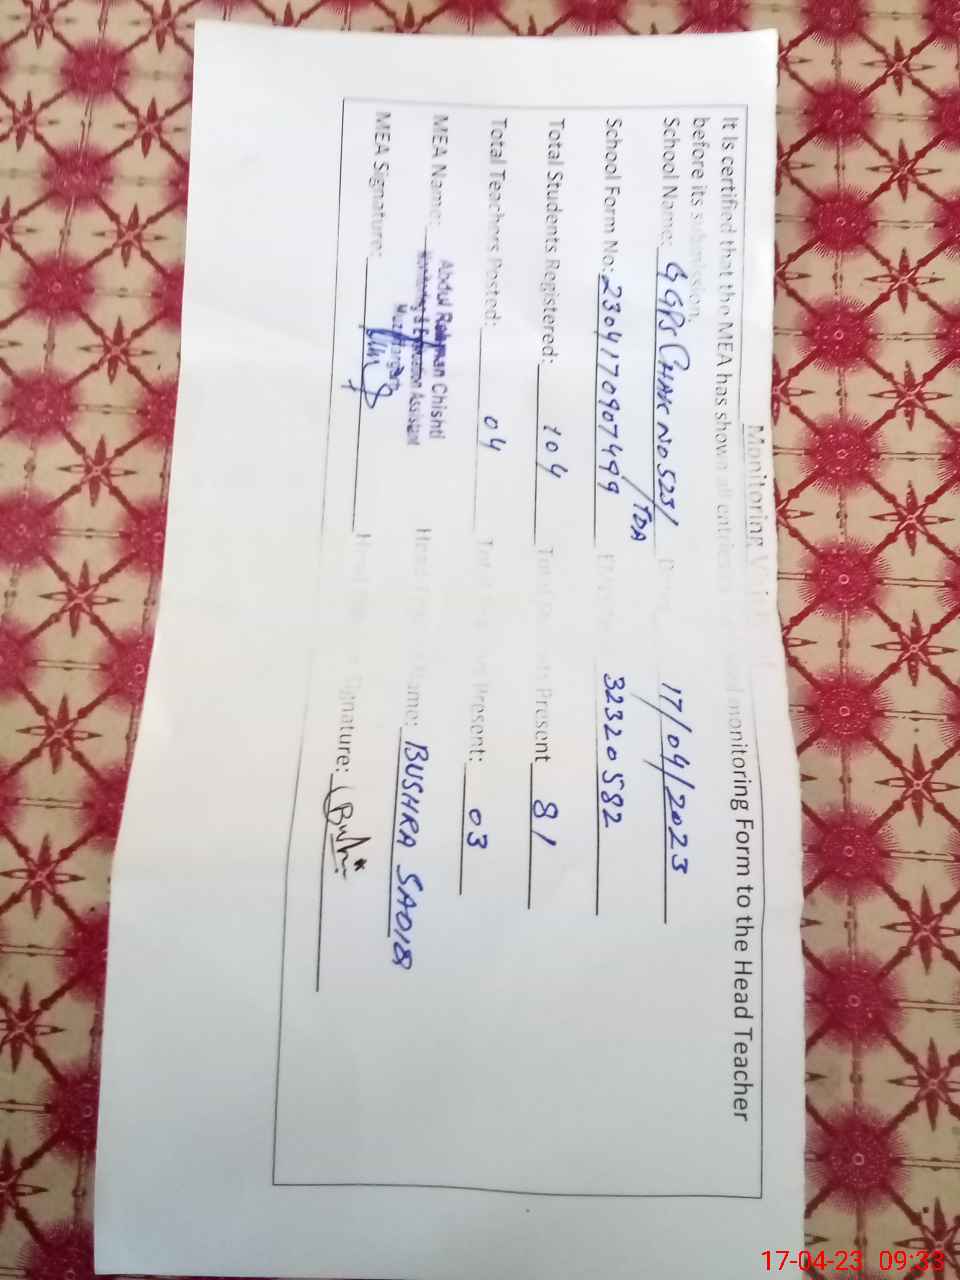 Monitoring
It Is certified that the MEA has shown all entries monitoring Form to the Head Teacher
before its submission.
School Name: GGPS CHAK NO 523/TDA 17/04/2023
School Form No: 2304170907499 32320582
Total Students Registered: 104 Total Present 81
Total Teachers Posted: 04 Total Present: 03
MEA Name: Abdul Rahman Chishti Head Name: BUSHRA SADIQ
Monitoring & Evaluation Assistant
Muzaffargarh
MEA Signature: Signature:
17-04-23 09:33